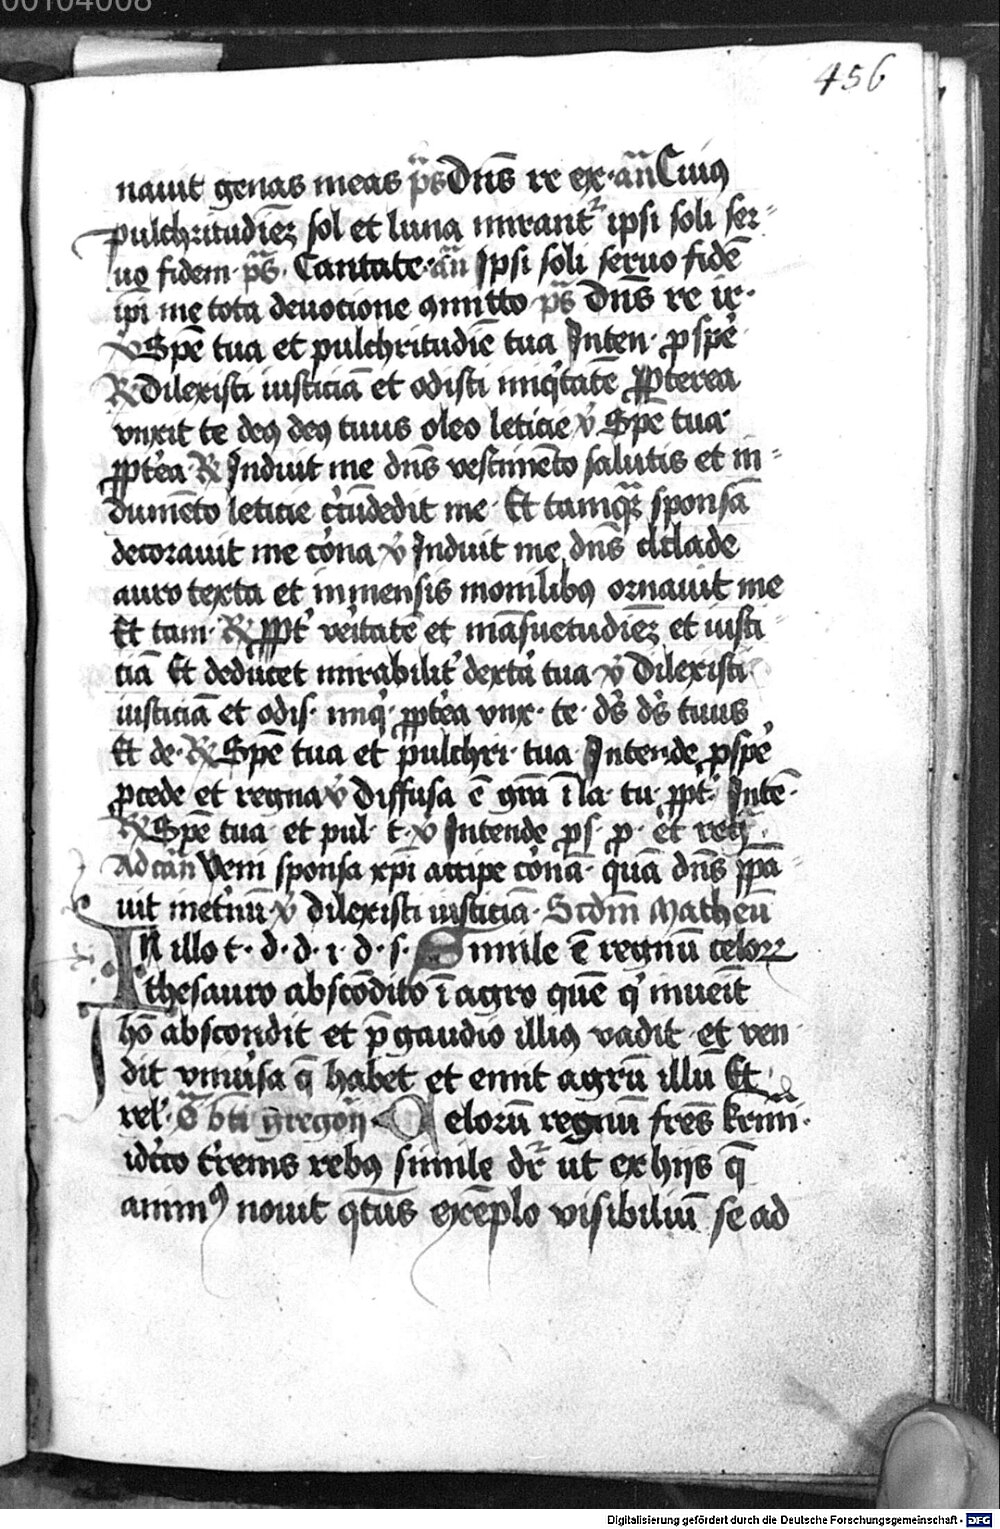 00104008
456
nauit genas meas ps̄ Dn̄s re ex· an̄ Cuiꝰ
pulchritudieꝫ sol et luna mirant᷑ ipsi soli ser⸗
uo fidem· ps̄· Cantate· an̄ Ipsi soli seruo fidē
ip̄i me tota deuocione ꝯmitto ps̄ Dn̄s re ir·
℣ Spē tua et pulchritudīe tua Inten· ꝓspe᷑
℟ Dilexisti iusticiā et odisti iniq᷑tatē ꝓpterea
vnxit te deꝰ deꝰ tuus oleo leticie ℣ Spē tua·
ꝓpt᷑ea ℟ Induit me dn̄s vestimēto salutis et in⸗
dumēto leticie c᷑cūdedit me· Et tamqꝫ sponsā
decorauit me co᷑na ℣ Induit me dn̄s ciclade
auro texta et immensis monilibꝰ ornauit me
Et tam· ℟ ꝓpt᷑ ve᷑itatē et māsuetudieꝫ et iusti
tiā Et deducet mirabilit᷑ dext᷑a tua ℣ Dilexisti
iusticiā et odis· iniq᷑· ꝓpt᷑ea vnx· te· ds̄ ds̄ tuus
Et de· ℟ Spē tua et pulchri· tua Intende ꝓspe᷑
ꝓcede et regna ℣ Diffusa ē gr̄a ī la· tu· ꝓpt᷑· Intē·
℟ Spē tua· et pul· t· ℣ Intende ꝓs· ꝓ· et reg̅·
Ad cā̄n Veni sponsa xp̄i accipe co᷑nā· quā dn̄s p̄pa
uit in et᷑nū ℣ Dilexisti iusticiā· Scd̄m Matheū
In illo t· d· d· i· d· s· Simile ē regnū celoꝝ
thesauro abscōdito ī agro quē q᷑ inueīt
hō abscondit et p̄ gaudio illiꝰ vadit et ven
dit vniu᷑sa q̄ habet et emit agrū illū Et
rel· O᷑ bt̄i gregorij Celorū regnū fres̄ kr̄mi·
idcīro t᷑renis rebꝰ simile dr᷑ ut ex hijs q̄
animꝰ nouit q̄tus̄ exēplo visibiliū se ad
Digitalisierung gefördert durch die Deutsche Forschungsgemeinschaft - DFG